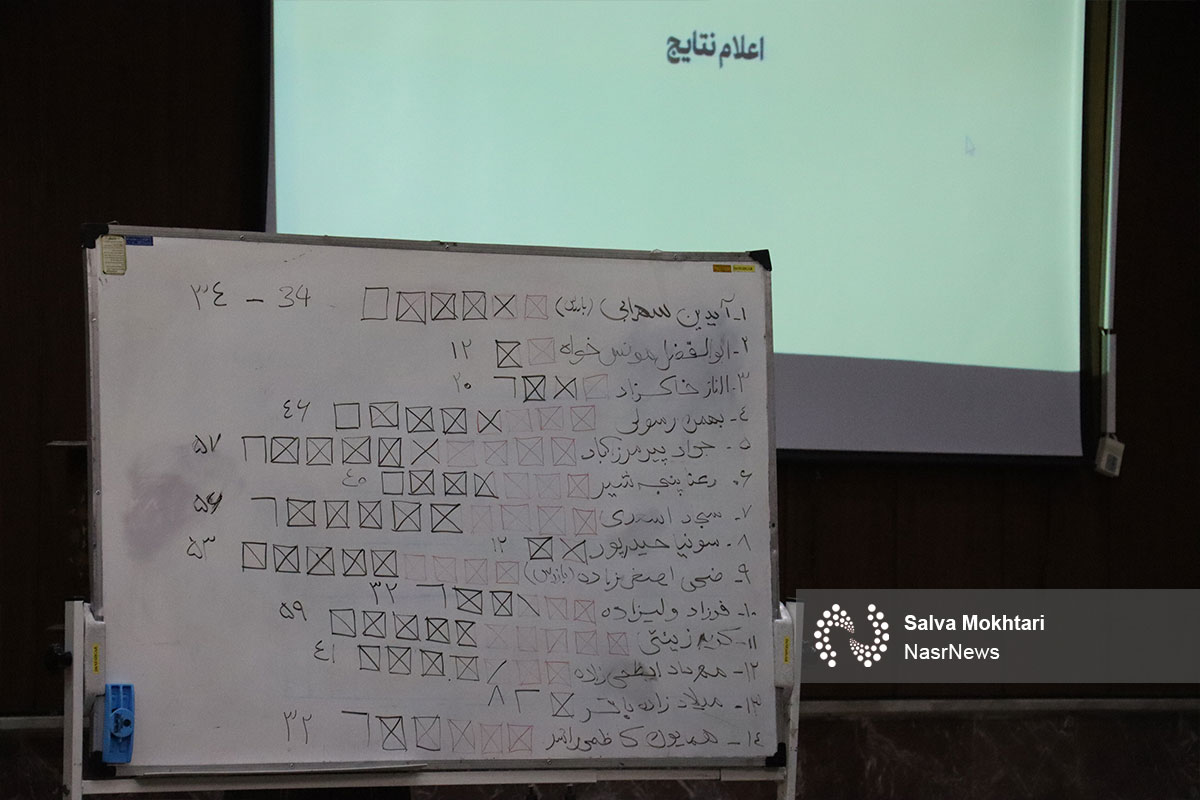 اعلام نتایج
۱- آیدین سهرابی (بازرس) 34 - ۳٤
۲- ابوالفضل مونس خواه ۱۲
۳- الناز خاکزاد ۲۰
٤- بهمن رسولی ٤۶
۵- جواد پیرمرزآباد ۵۷
۶- رعنا پنجه شیر ٤۰
۷- سجاد اسدی ۵۶
۸- سونیا حیدرپور ۱۲
۹- ضحی اصغرزاده (بازرس) ۵۳
۱۰- فرزاد ولیزاده ۳۲
۱۱- کریم زینتی ۵۹
۱۲- مهرداد زاده ٤۱
۱۳- میلاد زاده باقر ۸
۱٤- همایون کاظمی راشد ۳۲
Salva Mokhtari
NasrNews